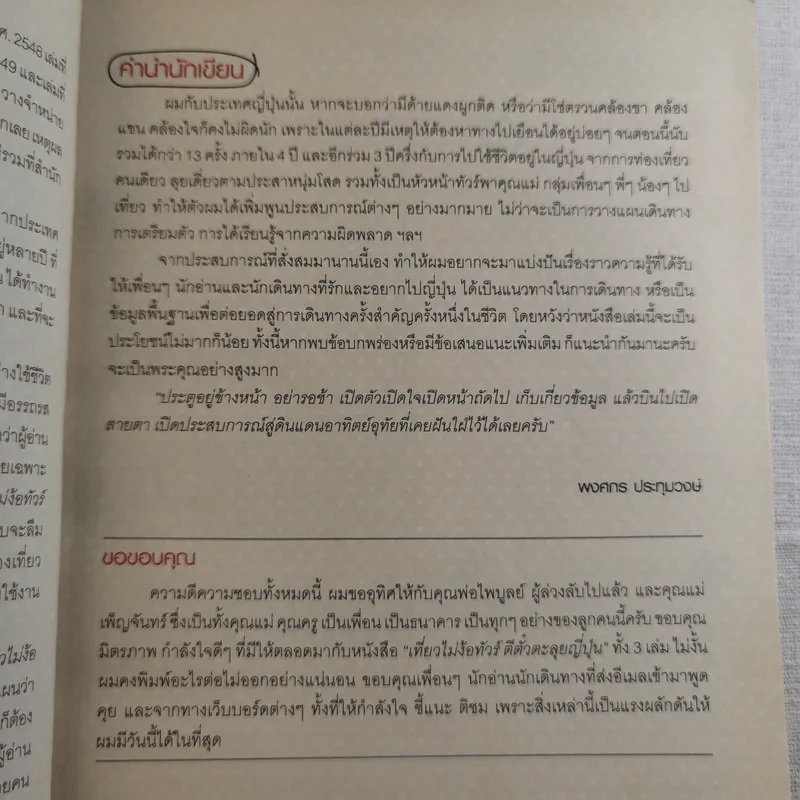 ศ. 2548 เล่มที่
49 และเล่มที่
วางจำหน่าย
กเลย เหตุผล
รวมที่สำนัก
ากประเทศ
ยู่หลายปี ที่
ได้ทำงาน
และที่จะ
างใช้ชีวิต
มีอรรถรส
งว่าผู้อ่าน
ยเฉพาะ
ม่ง้อทัวร์
บจะลืม
องเที่ยว
ใช้งาน
วไม่ง้อ
แผนว่า
ก็ต้อง
ผู้อ่าน
ายคน
คำนำนักเขียน
ผมกับประเทศญี่ปุ่นนั้น หากจะบอกว่ามีด้ายแดงผูกติด หรือว่ามีโซ่ตรวนคล้องขา คล้อง
แขน คล้องใจก็คงไม่ผิดนัก เพราะในแต่ละปีมีเหตุให้ต้องหาทางไปเยือนได้อยู่บ่อยๆ จนตอนนี้นับ
รวมได้กว่า 13 ครั้ง ภายใน 4 ปี และอีกร่วม 3 ปีครึ่งกับการไปใช้ชีวิตอยู่ในญี่ปุ่น จากการท่องเที่ยว
คนเดียว ลุยเดี่ยวตามประสาหนุ่มโสด รวมทั้งเป็นหัวหน้าทัวร์พาคุณแม่ กลุ่มเพื่อนๆ พี่ๆ น้องๆ ไป
เที่ยว ทำให้ตัวผมได้เพิ่มพูนประสบการณ์ต่างๆ อย่างมากมาย ไม่ว่าจะเป็นการวางแผนเดินทาง
การเตรียมตัว การได้เรียนรู้จากความผิดพลาด ฯลฯ
จากประสบการณ์ที่สั่งสมมานานนี้เอง ทำให้ผมอยากจะมาแบ่งปันเรื่องราวความรู้ที่ได้รับ
ให้เพื่อนๆ นักอ่านและนักเดินทางที่รักและอยากไปญี่ปุ่น ได้เป็นแนวทางในการเดินทาง หรือเป็น
ข้อมูลพื้นฐานเพื่อต่อยอดสู่การเดินทางครั้งสำคัญครั้งหนึ่งในชีวิต โดยหวังว่าหนังสือเล่มนี้จะเป็น
ประโยชน์ไม่มากก็น้อย ทั้งนี้หากพบข้อบกพร่องหรือมีข้อเสนอแนะเพิ่มเติม ก็แนะนำกันมานะครับ
จะเป็นพระคุณอย่างสูงมาก
"ประตูอยู่ข้างหน้า อย่ารอช้า เปิดตัวเปิดใจเปิดหน้าถัดไป เก็บเกี่ยวข้อมูล แล้วบินไปเปิด
สายตา เปิดประสบการณ์สู่ดินแดนอาทิตย์อุทัยที่เคยฝันใฝ่ไว้ได้เลยครับ"
พงศกร ประทุมวงษ์
ขอขอบคุณ
ความดีความชอบทั้งหมดนี้ ผมขออุทิศให้กับคุณพ่อไพบูลย์ ผู้ล่วงลับไปแล้ว และคุณแม่
เพ็ญจันทร์ ซึ่งเป็นทั้งคุณแม่ คุณครู เป็นเพื่อน เป็นธนาคาร เป็นทุกๆ อย่างของลูกคนนี้ครับ ขอบคุณ
มิตรภาพ กำลังใจดีๆ ที่มีให้ตลอดมากับหนังสือ "เที่ยวไม่ง้อทัวร์ ตีตั๋วตะลุยญี่ปุ่น" ทั้ง 3 เล่ม ไม่งั้น
ผมคงพิมพ์อะไรต่อไม่ออกอย่างแน่นอน ขอบคุณเพื่อนๆ นักอ่านนักเดินทางที่ส่งอีเมลเข้ามาพูด
คุย และจากทางเว็บบอร์ดต่างๆ ทั้งที่ให้กำลังใจ ชี้แนะ ติชม เพราะสิ่งเหล่านี้เป็นแรงผลักดันให้
ผมมีวันนี้ได้ในที่สุด